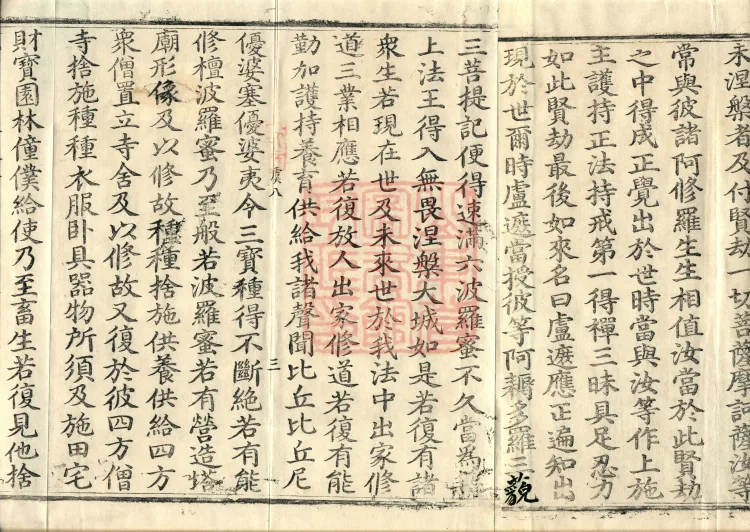 永涅槃者及付賢劫一切菩薩摩訶薩汝等
常與彼諸阿修羅生生相值汝當於此賢劫
之中得成正覺出於世時當與汝等作上施
主護持正法持戒第一得禪三昧具足忍力
如此賢劫最後如來名曰盧遮應正遍知出
現於世爾時盧遮當授彼等阿耨多羅三藐
三菩提記便得速滿六波羅蜜不久當為
上法王得入無畏涅槃大城如是若復有諸
衆生若現在世及未來世於我法中出家修
道三業相應若復放人出家修道若復有能
勤加護持養育供給我諸聲聞比丘比丘尼
虞八
三
優婆塞優婆夷令三寶種得不斷絕若有能
修檀波羅蜜乃至般若波羅蜜若有營造塔
廟形像及以修故種種捨施供養供給四方
衆僧置立寺舍及以修故又復於彼四方僧
寺捨施種種衣服臥具器物所須及施田宅
財寶園林僮僕給使乃至畜生若復見他捨